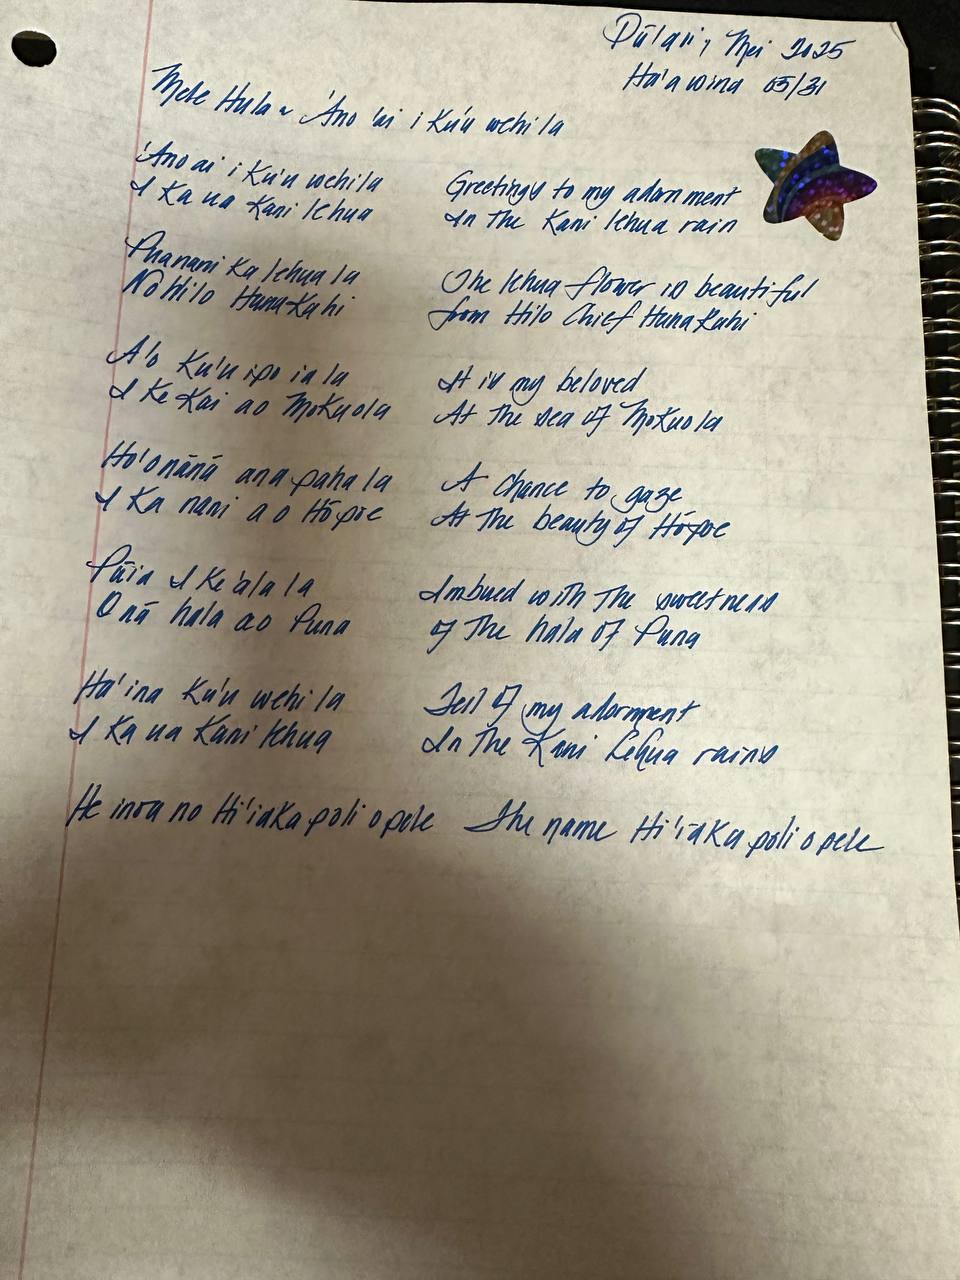 Pū'ali, Mei 2025
Ha'awina 05/31
Mele Hula ~ 'Ano 'ai i Ku'u wehi la
'Ano ai i Ku'u wehi la
I Ka ua Kani lehua
Greetings to my adornment
In the Kani lehua rain
Ka lehua la
No Hilo Hanakahi
The lehua flower is beautiful
from Hilo Chief Hanakahi
A'o Ku'u ipo ia la
I Ke Kai ao Mokuola
It is my beloved
At the sea of Mokuola
Ho'onānā ana paha la
I Ka nani a o Hōpoe
A chance to gaze
At the beauty of Hōpoe
Pūia I Ke 'ala la
O nā hala ao Puna
Imbued with the sweetness
of the hala of Puna
Ha'ina Ku'u wehi la
I Ka ua Kani lehua
Tell of my adornment
In the Kani Lehua rains
He inoa no Hi'iaka poli o pele
The name Hi'iaka poli o pele